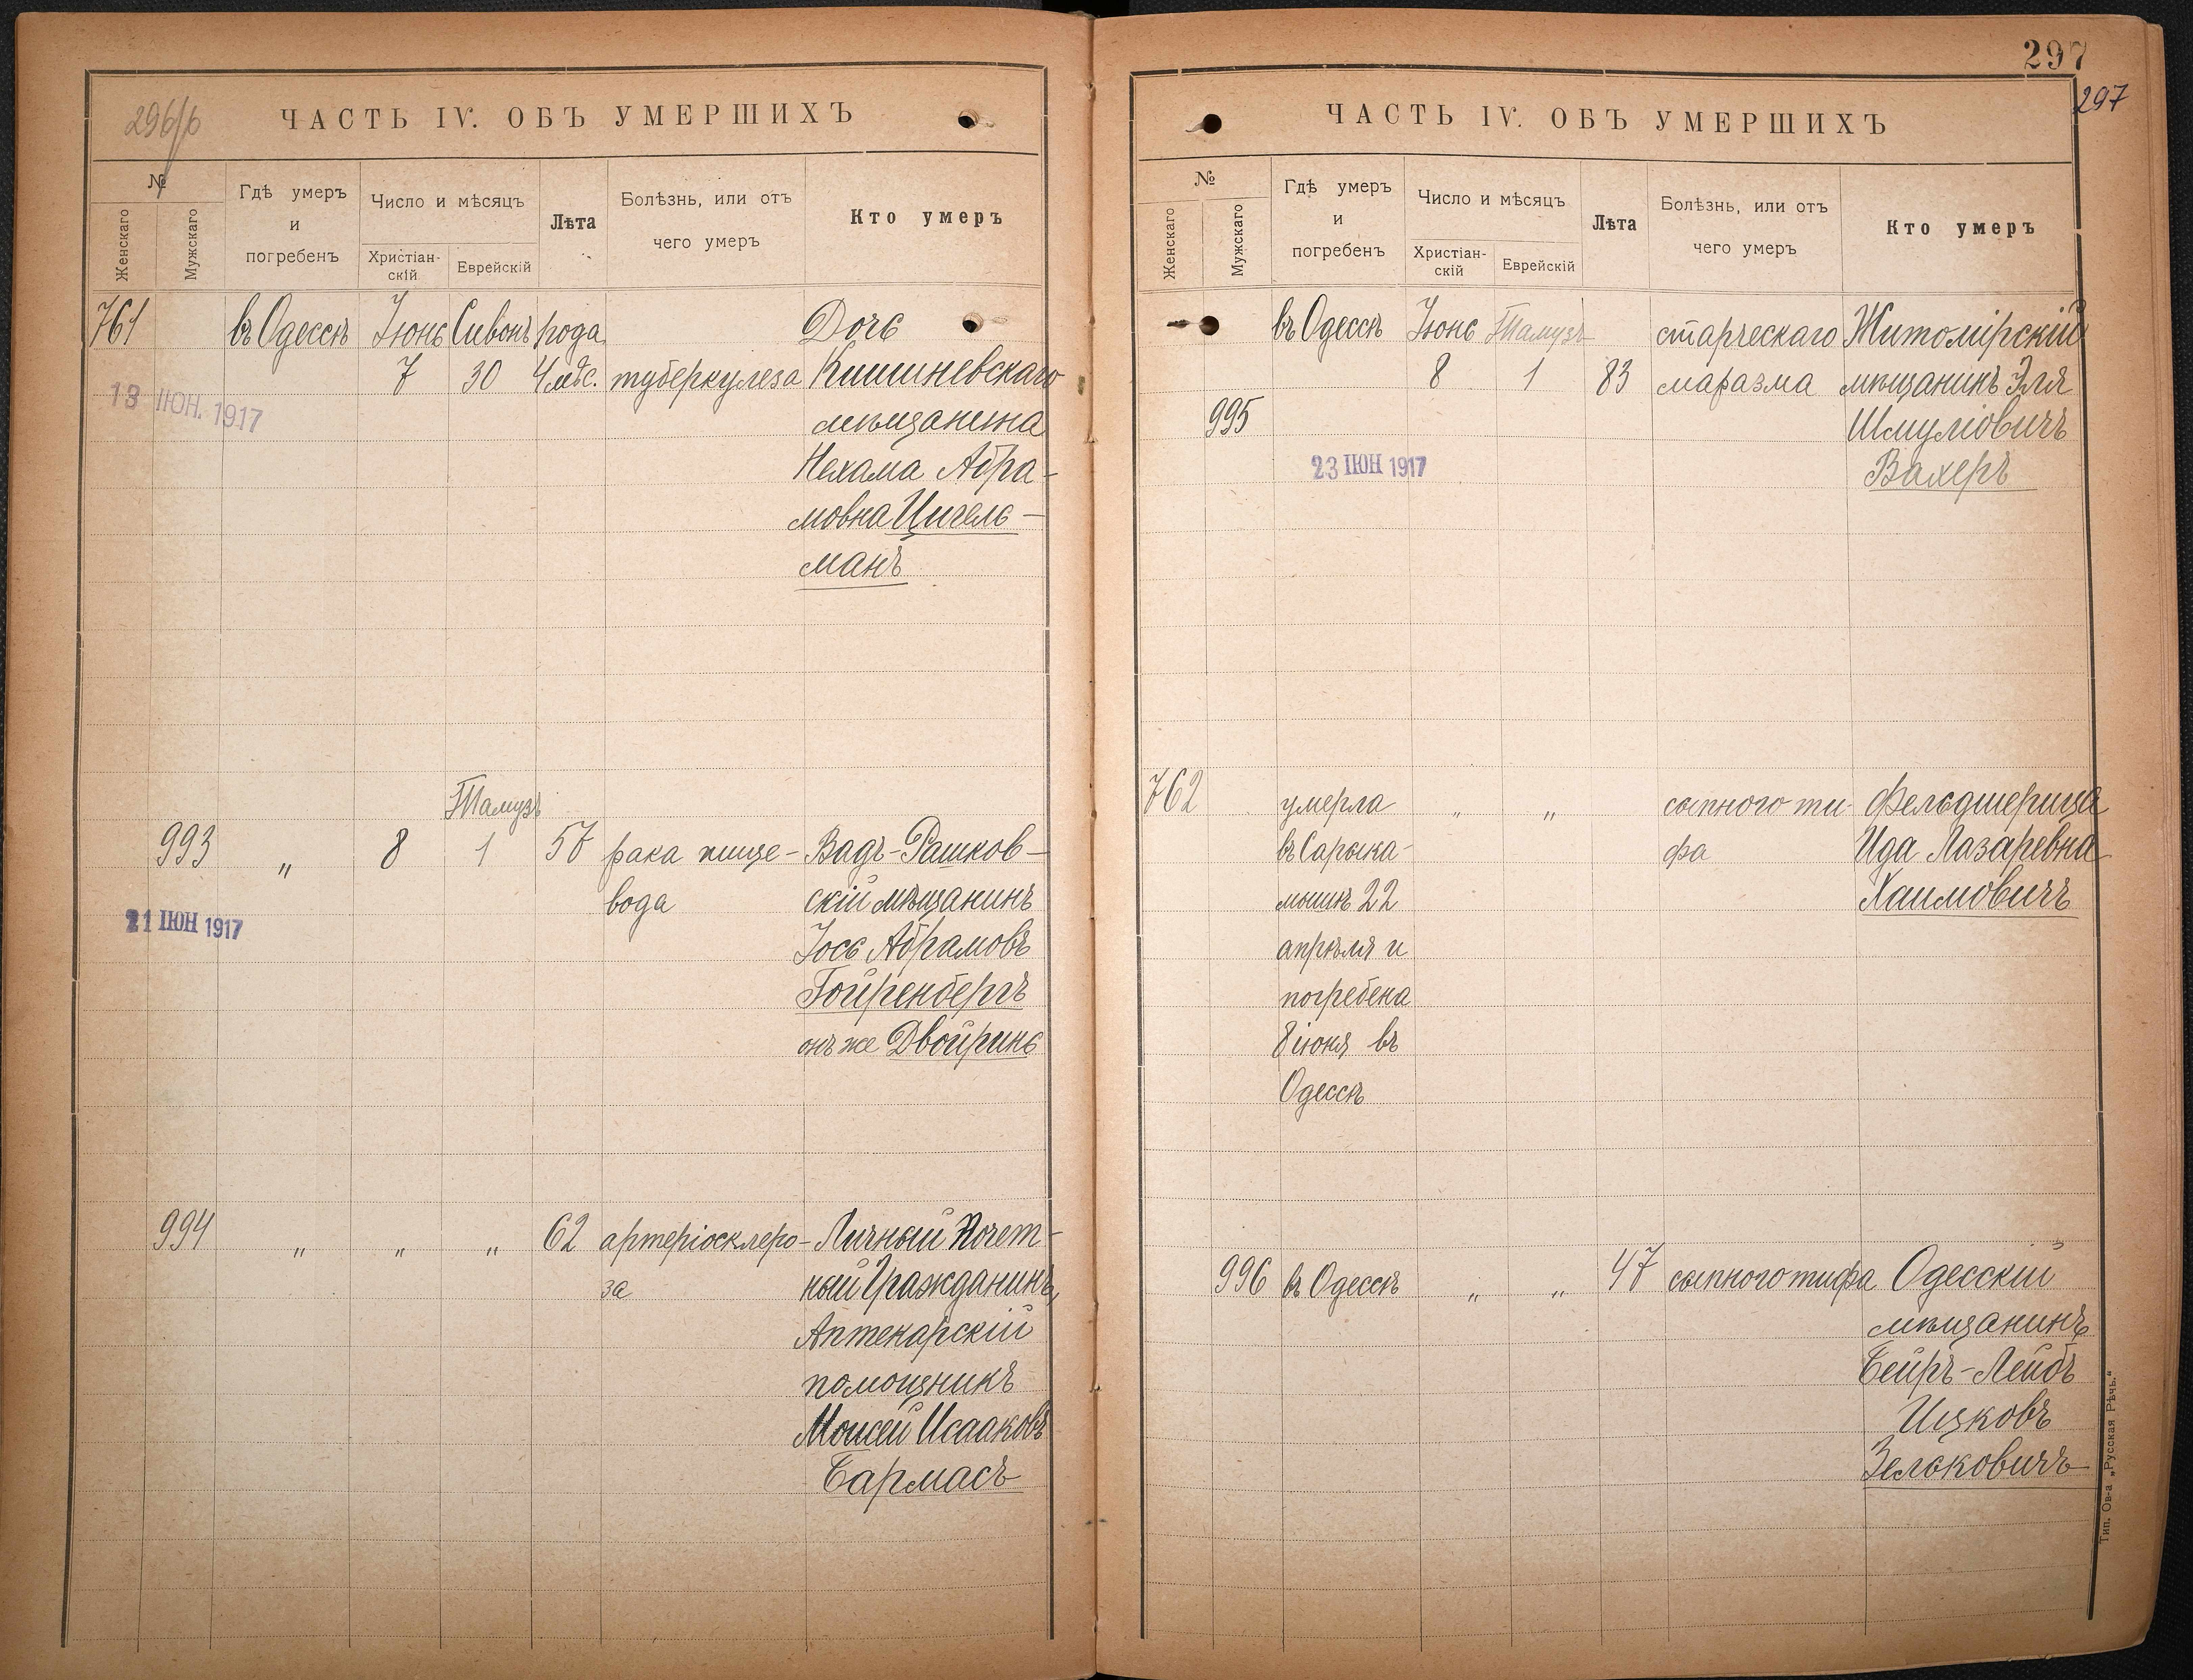 296/б
ЧАСТЬ IV. ОБЪ УМЕРШИХЪ
№
Женскаго
Мужскаго
Гдѣ умеръ
и
погребенъ
Число и мѣсяцъ
Христіан-
скій
Еврейскій
Лѣта
Болѣзнь, или отъ
чего умеръ
Кто умеръ
761 въ Одессѣ Іюнь Сивонъ года Дочь
7 30 4 мѣс. туберкулеза Кишиневскаго
13 ІЮН. 1917
мѣщанина
Нехама Абра-
мовна Цигель-
манъ
Тамузъ
993 " 8 1 57 рака пище- Вадъ-Рашков-
вода скій мѣщанинъ
21 ІЮН 1917
Іось Абрамовъ
Гойренбергъ
онъ же Двойринъ
994 " " " 62 артеріосклеро- Личный Почет-
за ный Гражданинъ,
Аптекарскій
помощникъ
Моисей Исааковъ
Бармасъ
297
297
ЧАСТЬ IV. ОБЪ УМЕРШИХЪ
№
Женскаго
Мужскаго
Гдѣ умеръ
и
погребенъ
Число и мѣсяцъ
Христіан-
скій
Еврейскій
Лѣта
Болѣзнь, или отъ
чего умеръ
Кто умеръ
въ Одессѣ Іюнь Тамузъ старческаго Житомірскій
8 1 83 маразма мѣщанинъ Эля
995 Шмуліовичъ
23 ІЮН 1917
Вахеръ
762 умерла " " сыпного ти- Фельдшерица
въ Сарыка- фа Ида Лазаревна
мышѣ 22 Хаимовичъ
апрѣля и
погребена
8 іюня въ
Одессѣ
996 въ Одессѣ " " 47 сыпного тифа Одесскій
мѣщанинъ
Бейръ-Лейбъ
Ицковъ
Зельковичъ
Тип. Ов-а „Русская Рѣчь.“